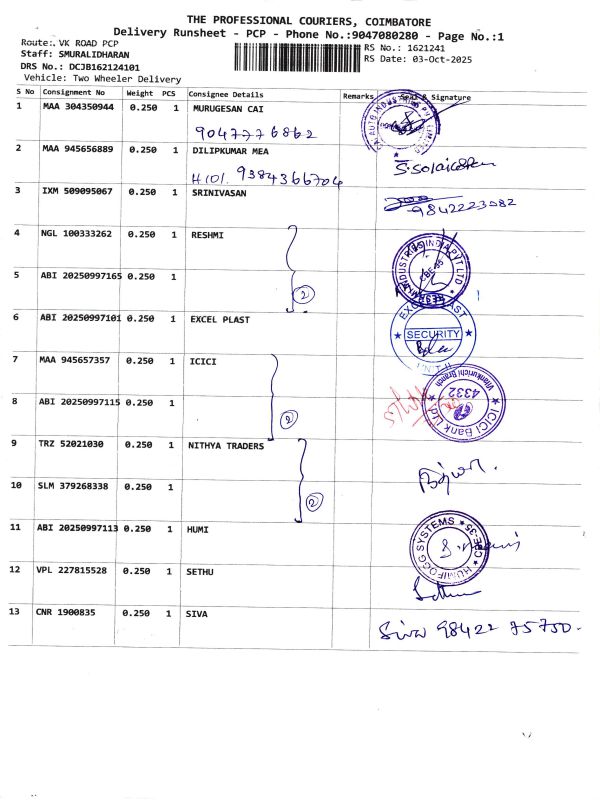 THE PROFESSIONAL COURIERS, COIMBATORE
Delivery Runsheet - PCP - Phone No.:9047080280 - Page No.:1
Route:. VK ROAD PCP
RS No.: 1621241
Staff: SMURALIDHARAN
RS Date: 03-Oct-2025
DRS No.: DCJB162124101
Vehicle: Two Wheeler Delivery
S No Consignment No Weight PCS Consignee Details Remarks Seal & Signature
1 MAA 304350944 0.250 1 MURUGESAN CAI
9047776862
2 MAA 945656889 0.250 1 DILIPKUMAR MEA
H101. 9384366704
3 IXM 509095067 0.250 1 SRINIVASAN
9842223082
4 NGL 100333262 0.250 1 RESHMI
5 ABI 20250997165 0.250 1
2
6 ABI 20250997101 0.250 1 EXCEL PLAST
SECURITY
UNIT-II
7 MAA 945657357 0.250 1 ICICI
ICICI Bank Ltd
4332
8 ABI 20250997115 0.250 1
2
9 TRZ 52021030 0.250 1 NITHYA TRADERS
10 SLM 379268338 0.250 1
2
11 ABI 20250997113 0.250 1 HUMI
HUMIFOGG SYSTEMS
CBE-35
12 VPL 227815528 0.250 1 SETHU
13 CNR 1900835 0.250 1 SIVA
Siva 98422 75750.